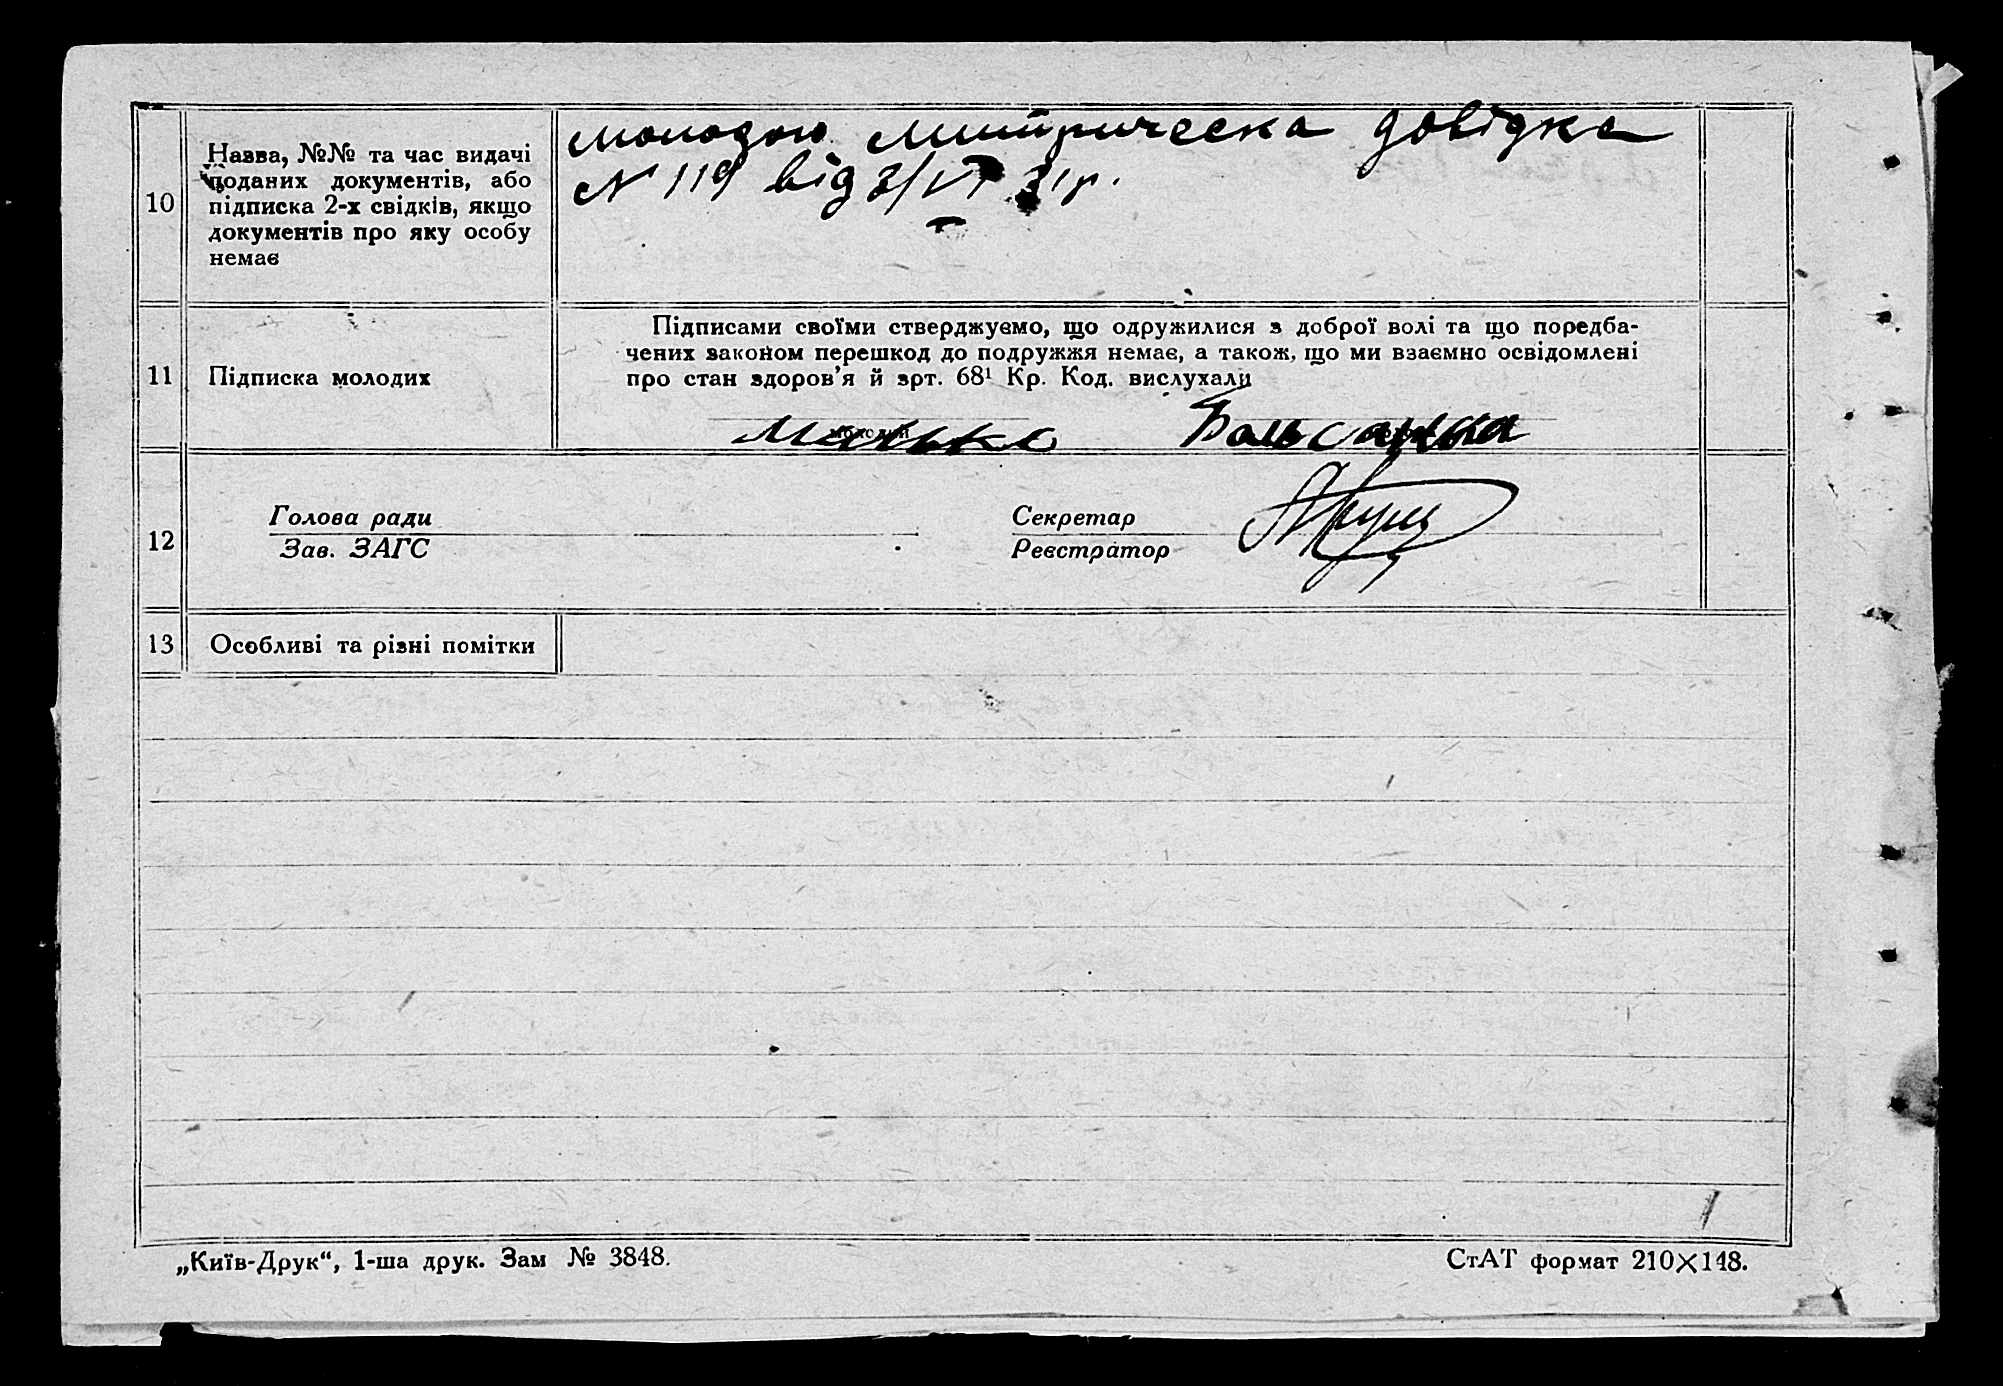 10
Назва, №№ та час видачі
поданих документів, або
підписка 2-х свідків, якщо
документів про яку особу
немає
молодою митрическа довідка
N 119 від 3/VI 31р.
11
Підписка молодих
Підписами своїми стверджуємо, що одружилися з доброї волі та що поредба-
чених законом перешкод до подружжя немає, а також, що ми взаємно освідомлені
про стан здоров’я й зрт. 68¹ Кр. Код. вислухали
Манько Бальсанка
молодий
12
Голова ради
Зав. ЗАГС
Секретар
Реєстратор
13
Особливі та різні помітки
„Київ-Друк“, 1-ша друк. Зам № 3848.
СтАТ формат 210×148.